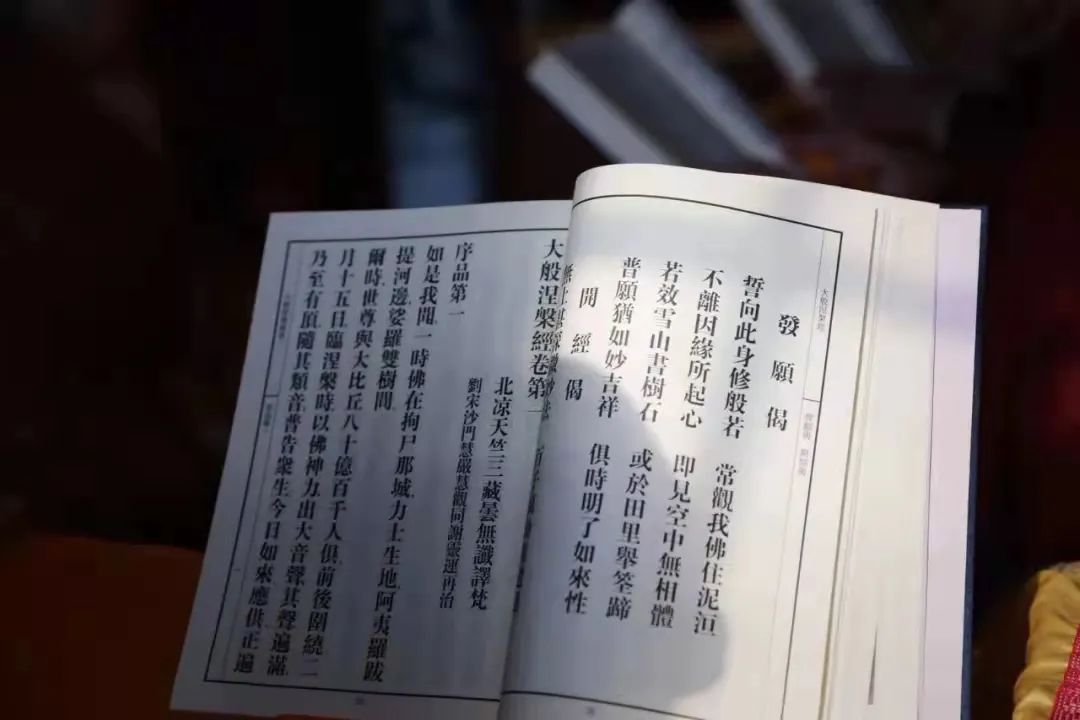 發願偈
誓向此身修般若 常觀我佛住泥洹
不離因緣所起心 即見空中無相體
若效雪山書樹石 或於田里舉筌蹄
普願猶如妙吉祥 俱時明了如來性
開經偈
大般涅槃經卷第一
北凉天竺三藏曇無讖譯梵
劉宋沙門慧嚴慧觀同謝靈運再治
序品第一
如是我聞一時佛在拘尸那城力士生地阿夷羅跋
提河邊娑羅雙樹間
爾時世尊與大比丘八十億百千人俱前後圍繞二
月十五日臨涅槃時以佛神力出大音聲其聲遍滿
乃至有頂隨其類音普告衆生今日如來應供正遍
大般涅槃經